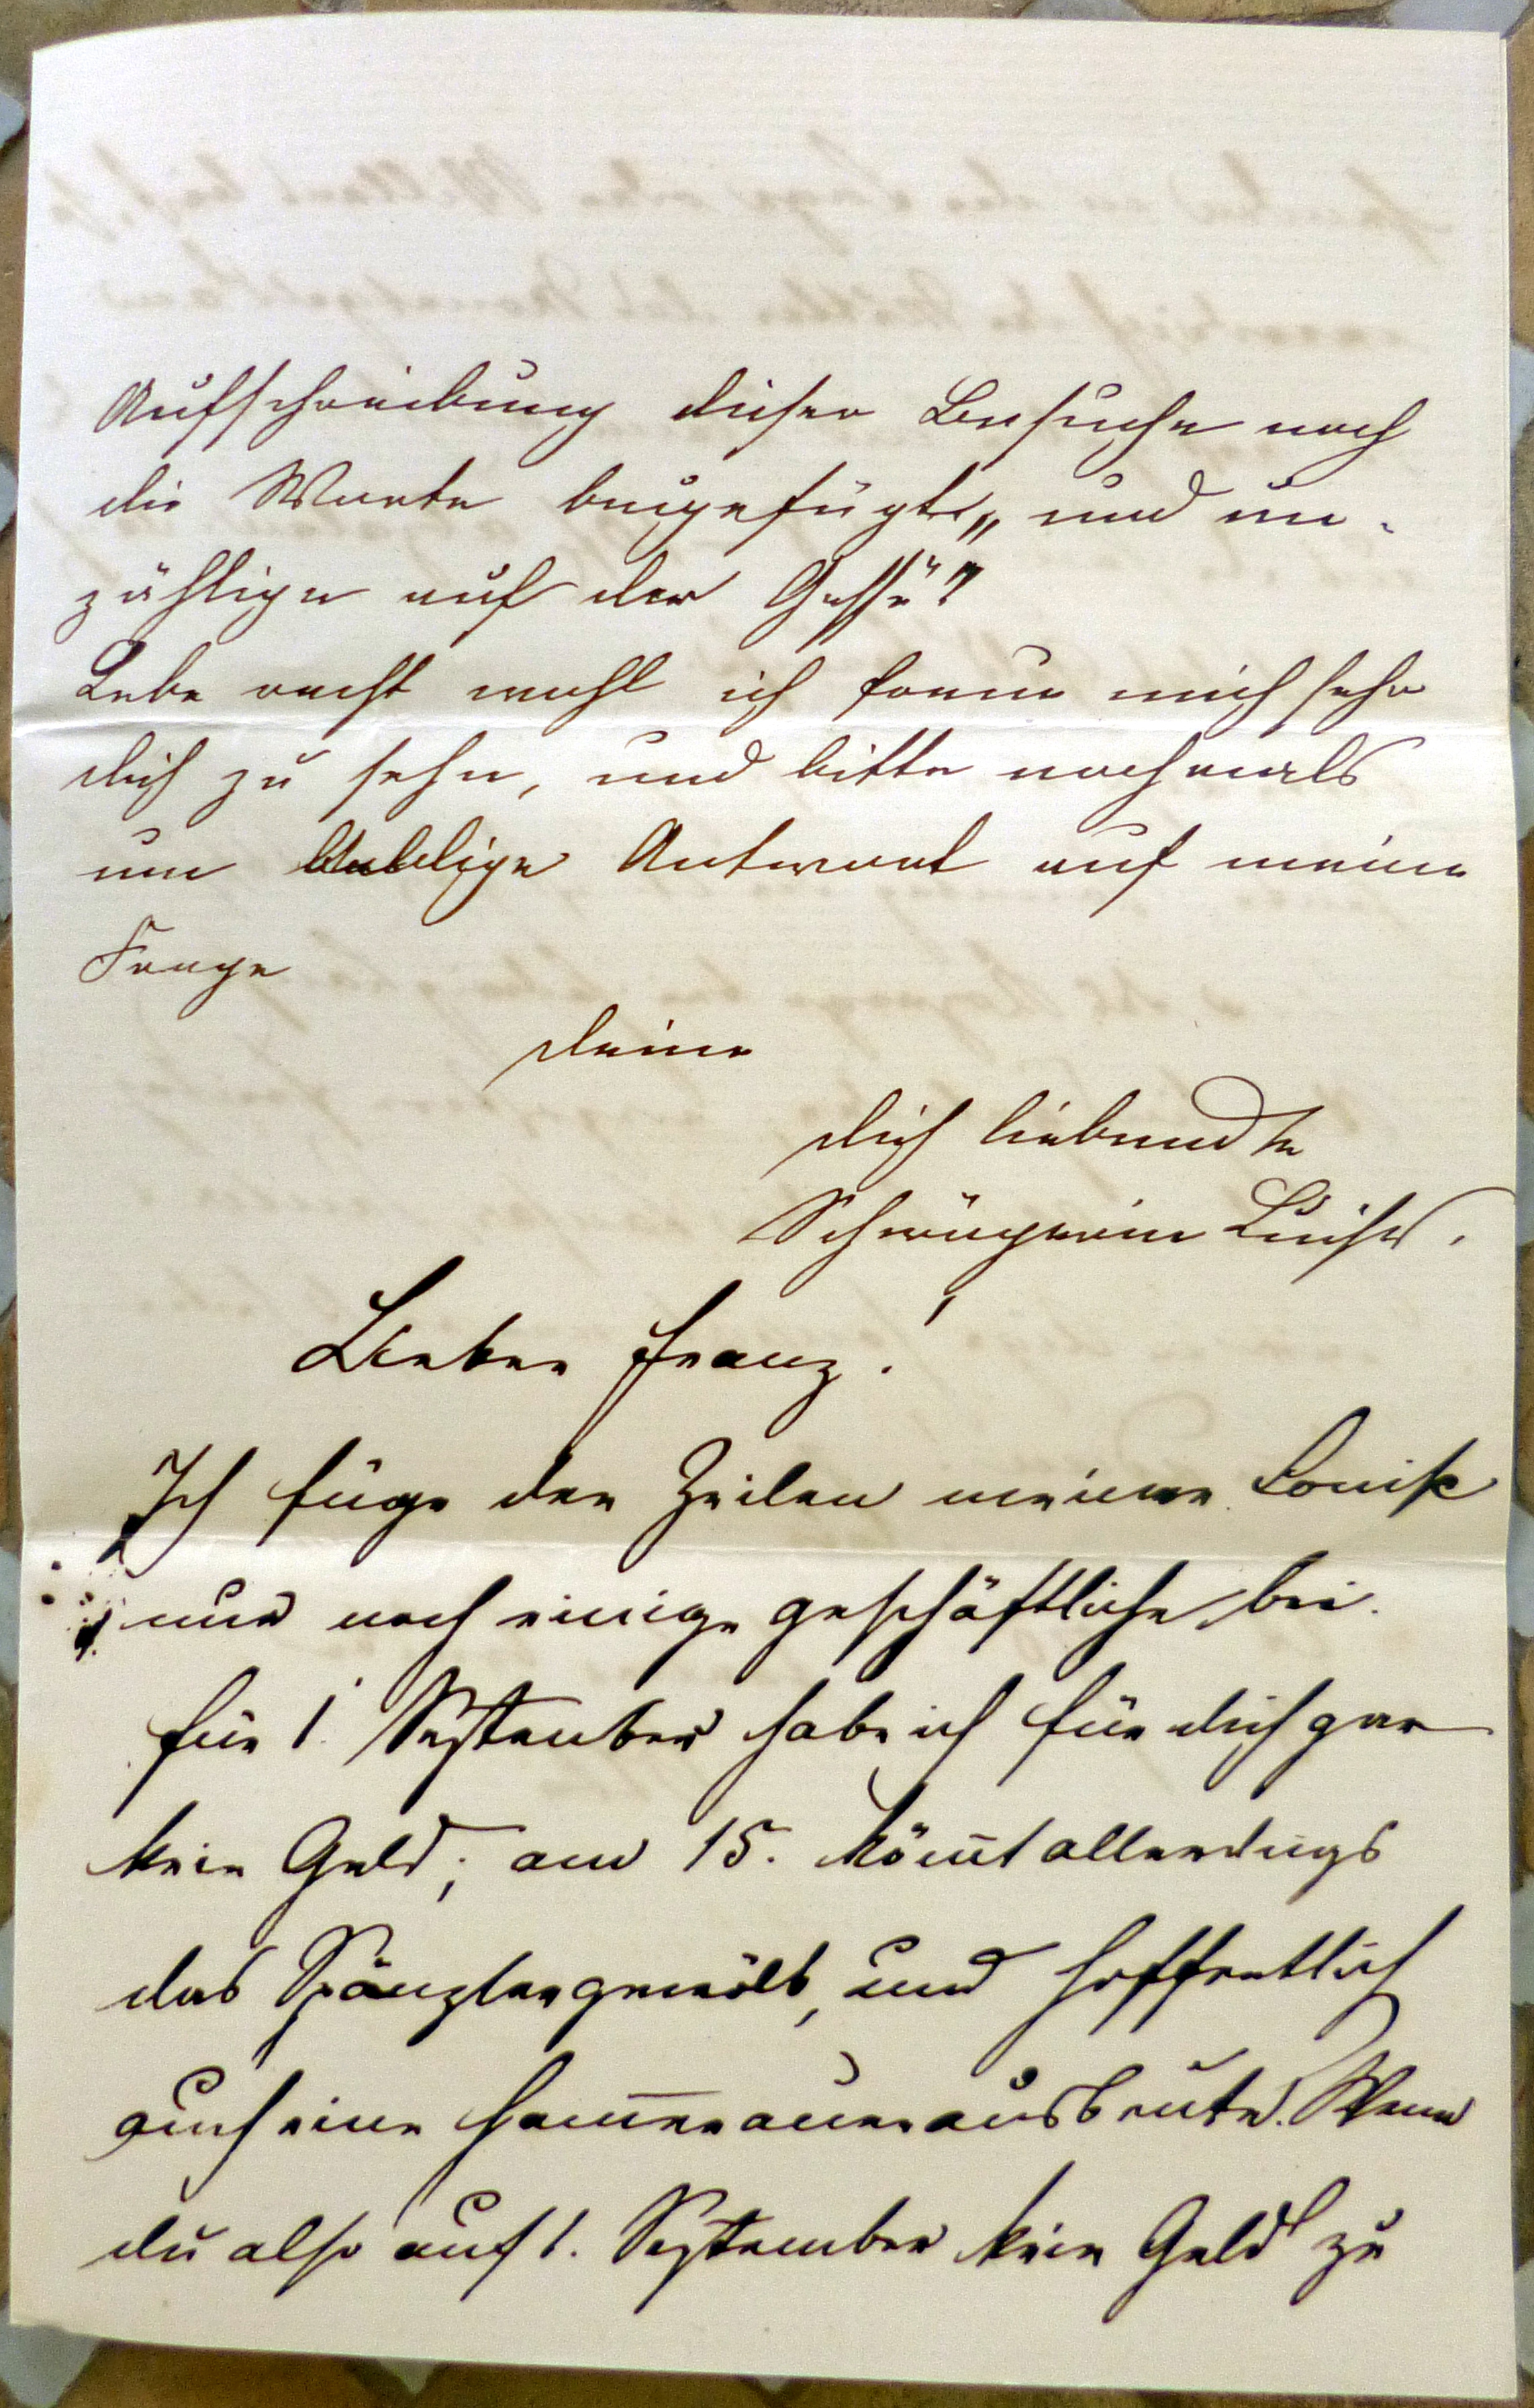 Aufschreibung dieser Besuche noch
die Worte beigefügt „und un-
zählige auf der Gasse"?
Lebe recht wohl ich freue mich sehr
dich zu sehn, und bitte nochmals
um baldige Antwort auf meine
Frage
deine
dich liebende
Schwägerin Luise.
Lieber Franz!
Ich füge den Zeilen meiner Louise
nur noch einige geschäftliche bei.
Für 1. September habe ich für dich gar
kein Geld; am 15. kömt allerdings
das und hoffentlich
auch eine Wenn
du also auf 1. September kein Geld zu